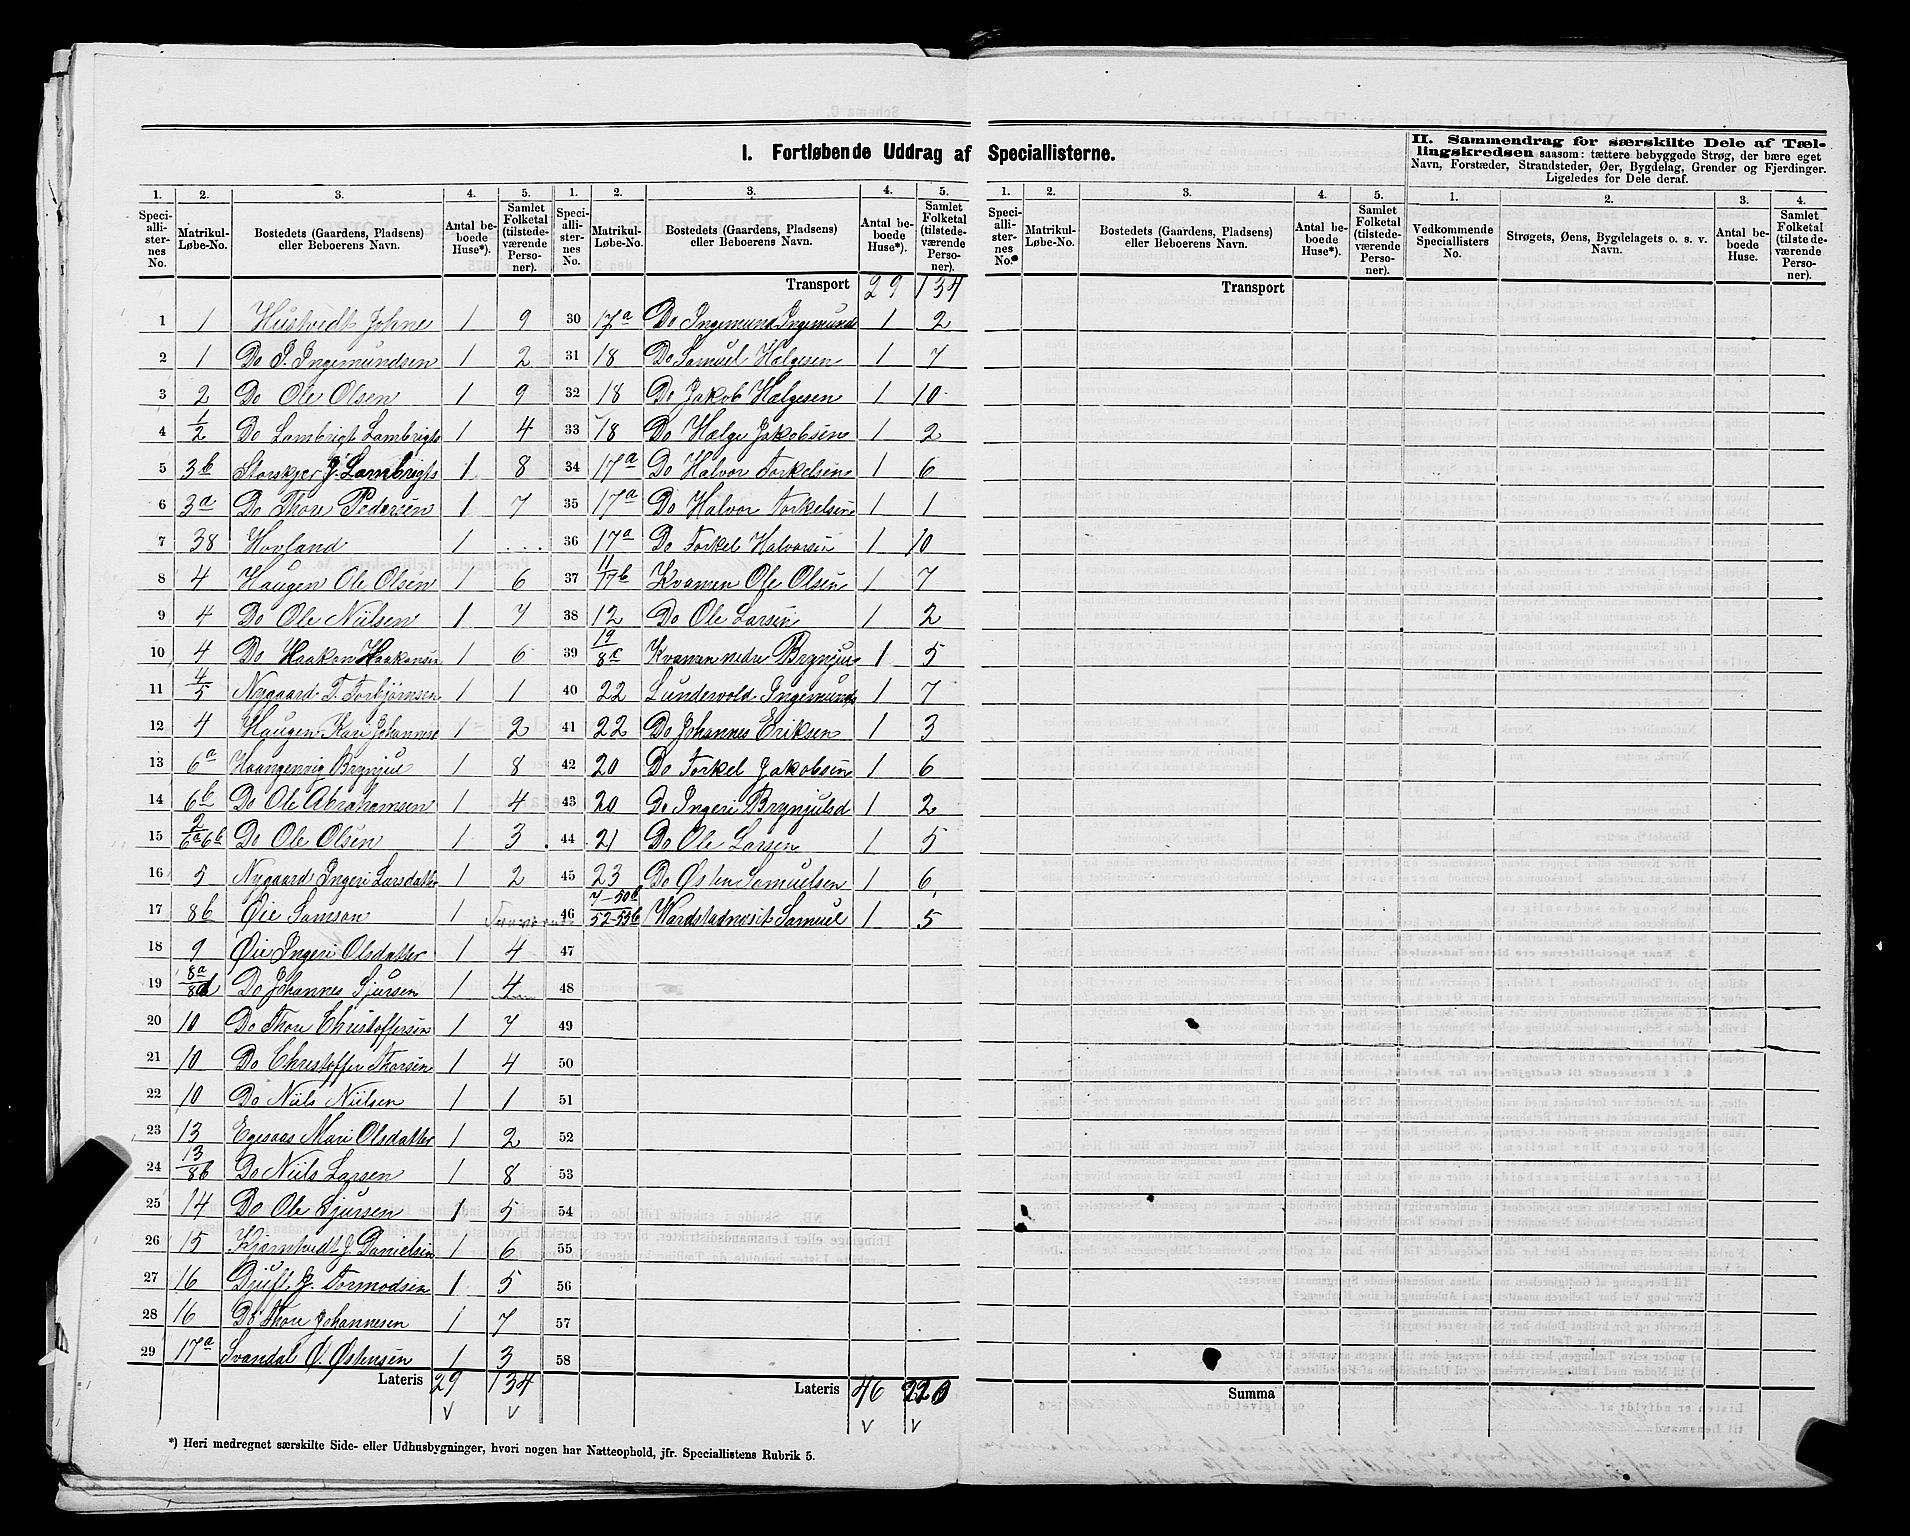 I. Fortløbende Uddrag af Speciallisterne.
II. Sammendrag for særskilte Dele af Tællingskredsen saasom: tættere bebyggede Strøg, der bære eget Navn, Forstæder, Strandsteder, Øer, Bygdelag, Grender og Fjerdinger. Ligeledes for Dele deraf.
1. 2. 3. 4. 5. 1. 2. 3. 4. 5. 1. 2. 3. 4. 5. 1. 2. 3. 4.
Speciallisternes No. Matrikul-Løbe-No. Bostedets (Gaardens, Pladsens) eller Beboerens Navn. Antal beboede Huse*). Samlet Folketal (tilstedeværende Personer).
Speciallisternes No. Matrikul-Løbe-No. Bostedets (Gaardens, Pladsens) eller Beboerens Navn. Antal beboede Huse*). Samlet Folketal (tilstedeværende Personer).
Speciallisternes No. Matrikul-Løbe-No. Bostedets (Gaardens, Pladsens) eller Beboerens Navn. Antal beboede Huse*). Samlet Folketal (tilstedeværende Personer).
Vedkommende Speciallisters No. Strøgets, Øens, Bygdelagets o. s. v. Navn. Antal beboede Huse. Samlet Folketal (tilstedeværende Personer).
1 1 Hustvedt Johne 1 9
2 1 Do I. Ingemundsen 1 2
3 2 Do Ole Olsen 1 9
4 1/2 Do Lambrigt Lambrigts 1 4
5 3b Storskjer J. Lambrigts 1 8
6 3a Do Thore Pedersen 1 7
7 38 Hovland 1 ...
8 4 Haugen Ole Olsen 1 6
9 4 Do Ole Nilsen 1 7
10 4 Do Haakon Haakonsen 1 6
11 4/5 Nygaard T. Torbjørnsen 1 1
12 4 Haugen Kari Johannse 1 2
13 6a Haangenvig Brynjul 1 8
14 6b Do Ole Abrahamsen 1 4
15 2/6a6b Do Ole Olsen 1 3
16 5 Nygaard Ingeri Larsdatter 1 2
17 8b Øie Samson 1
18 9 Øie Ingeri Olsdatter 1 4
19 8a/8d Do Johannes Sjursen 1 4
20 10 Do Thore Christoffersen 1 7
21 10 Do Christoffer Thorsen 1 4
22 10 Do Niels Nielsen 1 1
23 13 Egesaas Mari Olsdatter 1 2
24 13/8b Do Niels Larsen 1 8
25 14 Do Ole Sjursen 1 5
26 15 Kjørnstvedt J. Danielsen 1 6
27 16 Djuft J. Tormodsen 1 5
28 16 Do Thore Johannesen 1 7
29 17a Svandal Ø. Østensen 1 3
Lateris 29 134
Transport 29 134
30 17a Do Ingemund Ingemunds 1 2
31 18 Do Samuel Hølgesen 1 7
32 18 Do Jakob Hølgesen 1 10
33 18 Do Hølge Jakobsen 1 2
34 17a Do Halvor Torkelsen 1 6
35 17a Do Halvor Torkelsen 1 1
36 17a Do Torkel Halvorsen 1 10
37 11/17b Kvamen Ole Olsen 1 7
38 12 Do Ole Larsen 1 2
39 19/8c Kvamen nedre Brynjul 1 5
40 22 Lundevold Ingemunds 1 7
41 22 Do Johannes Eriksen 1 3
42 20 Do Torkel Jakobsen 1 6
43 20 Do Ingeri Brynjulsd 1 2
44 21 Do Ole Larsen 1 5
45 23 Do Østen Samuelsen 1 6
46 7-50b/52-53b Vardstadnesit Samuel 1 5
47
48
49
50
51
52
53
54
55
56
57
58
Lateris 46 220
Transport
Summa
*) Heri medregnet særskilte Side- eller Udhusbygninger, hvori nogen har Natteophold, jfr. Speciallistens Rubrik 5.